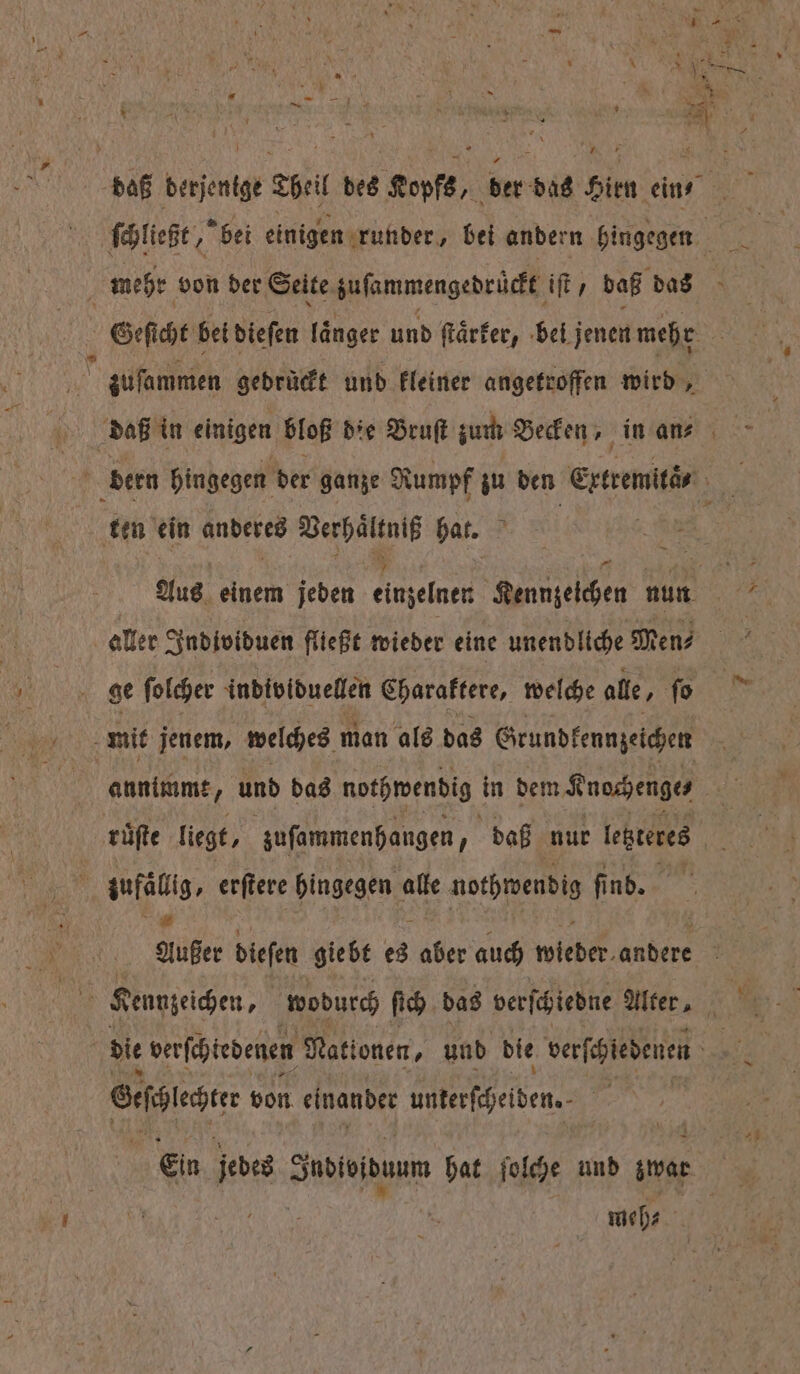 daß derjenige Theil des Kopfs, der das Hirn ein⸗
ſchließt, bei einigen runder, bei andern hingegen
mehr von der Seite zuſammengedruͤckt iſt, daß das
Geſicht bei dieſen laͤnger und ſtaͤrker, bei jenen mehr
zuſammen gedruͤckt und kleiner angetroffen wird,
daß in einigen bloß die Bruſt zum Becken, in an⸗
dern hingegen der ganze Rumpf zu den Extremitaͤ⸗
ten ein anderes Verhaͤltniß hat.
Aus einem jeden einzelnen Kennzeichen nun
aller Individuen fließt wieder eine unendliche Men⸗
ge ſolcher individuellen Charaktere, welche alle, ſo
mit jenem, welches man als das Grundkennzeichen
annimmt, und das nothwendig in dem Knochenge⸗
ruͤſte liegt, zuſammenhangen, daß nur letzteres
zufaͤllig, erſtere hingegen alle nothwendig ſind.
Außer dieſen giebt es aber auch wieder andere
Kennzeichen, wodurch ſich das verſchiedne Alter,
die verſchiedenen Nationen, und die verſchiedenen
Geſchlechter von einander unterſcheiden.
Ein jedes Individuum hat ſolche und zwar
meh⸗